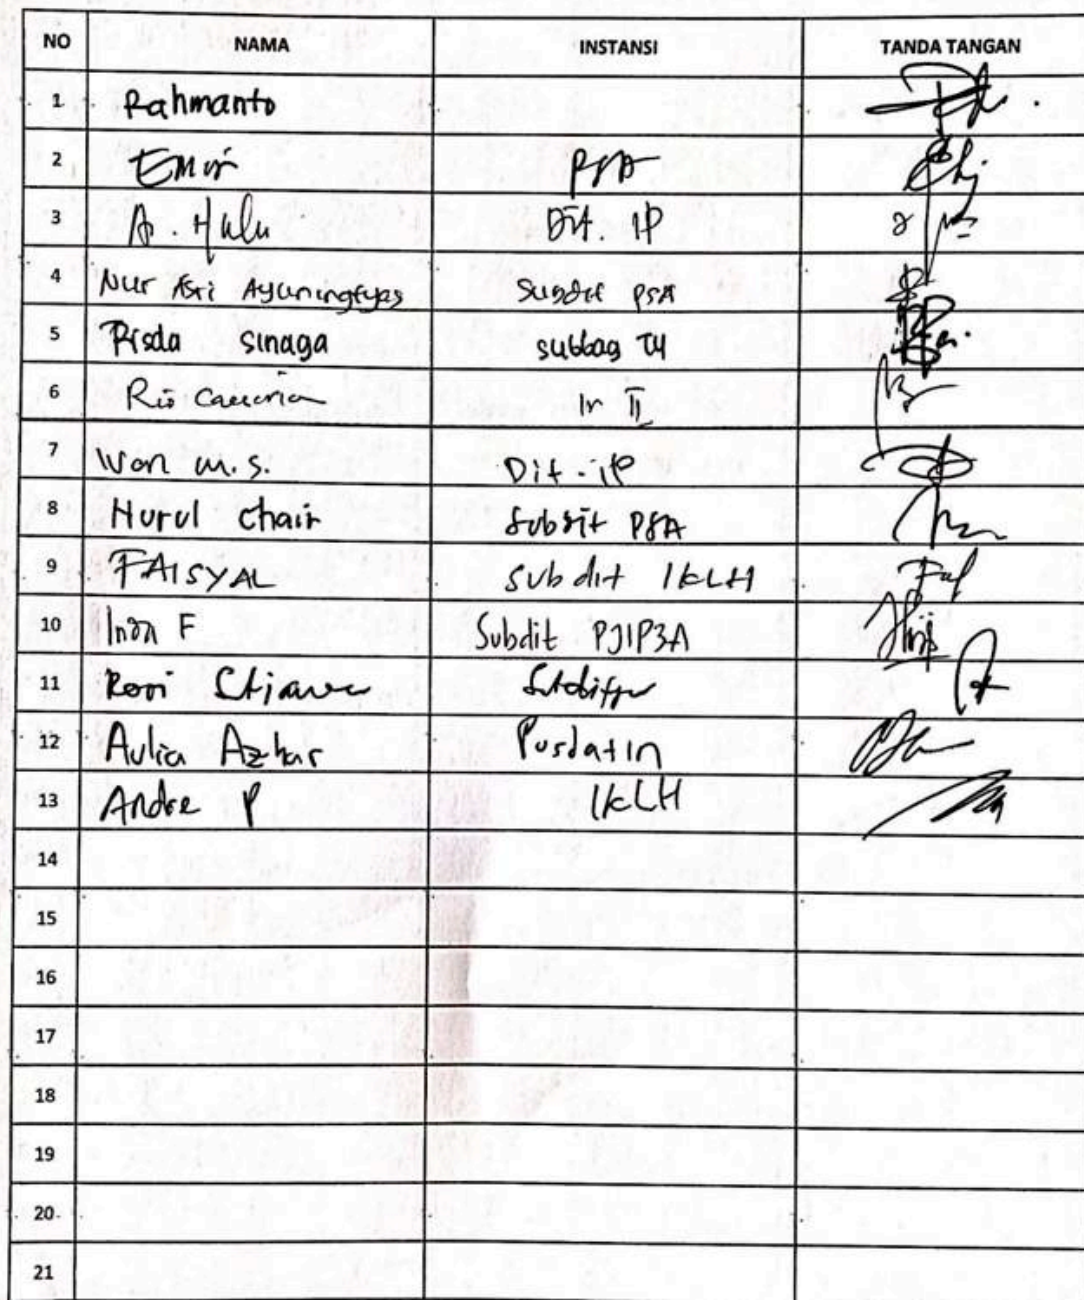 NO NAMA INSTANSI TANDA TANGAN
1 Rahmanto
2 Emir PSA
3 A. Hulu Dit. IP
4 Nur Asri Ayuningtyas Subdit PSA
5 Risda Sinaga subbag TU
6 Ris Ir II
7 Wan M.S. Dit. IP
8 Nurul Chair Subdit PSA
9 FAISYAL Subdit IKLH
10 F Subdit PJIP3A
11
12 Aulia Azhar Pusdatin
13 Andre P IKLH
14
15
16
17
18
19
20
21